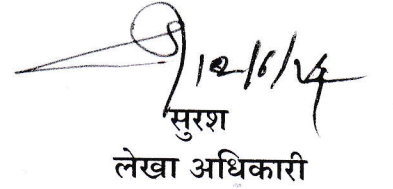 12/6/24
सुरश
लेखा अधिकारी